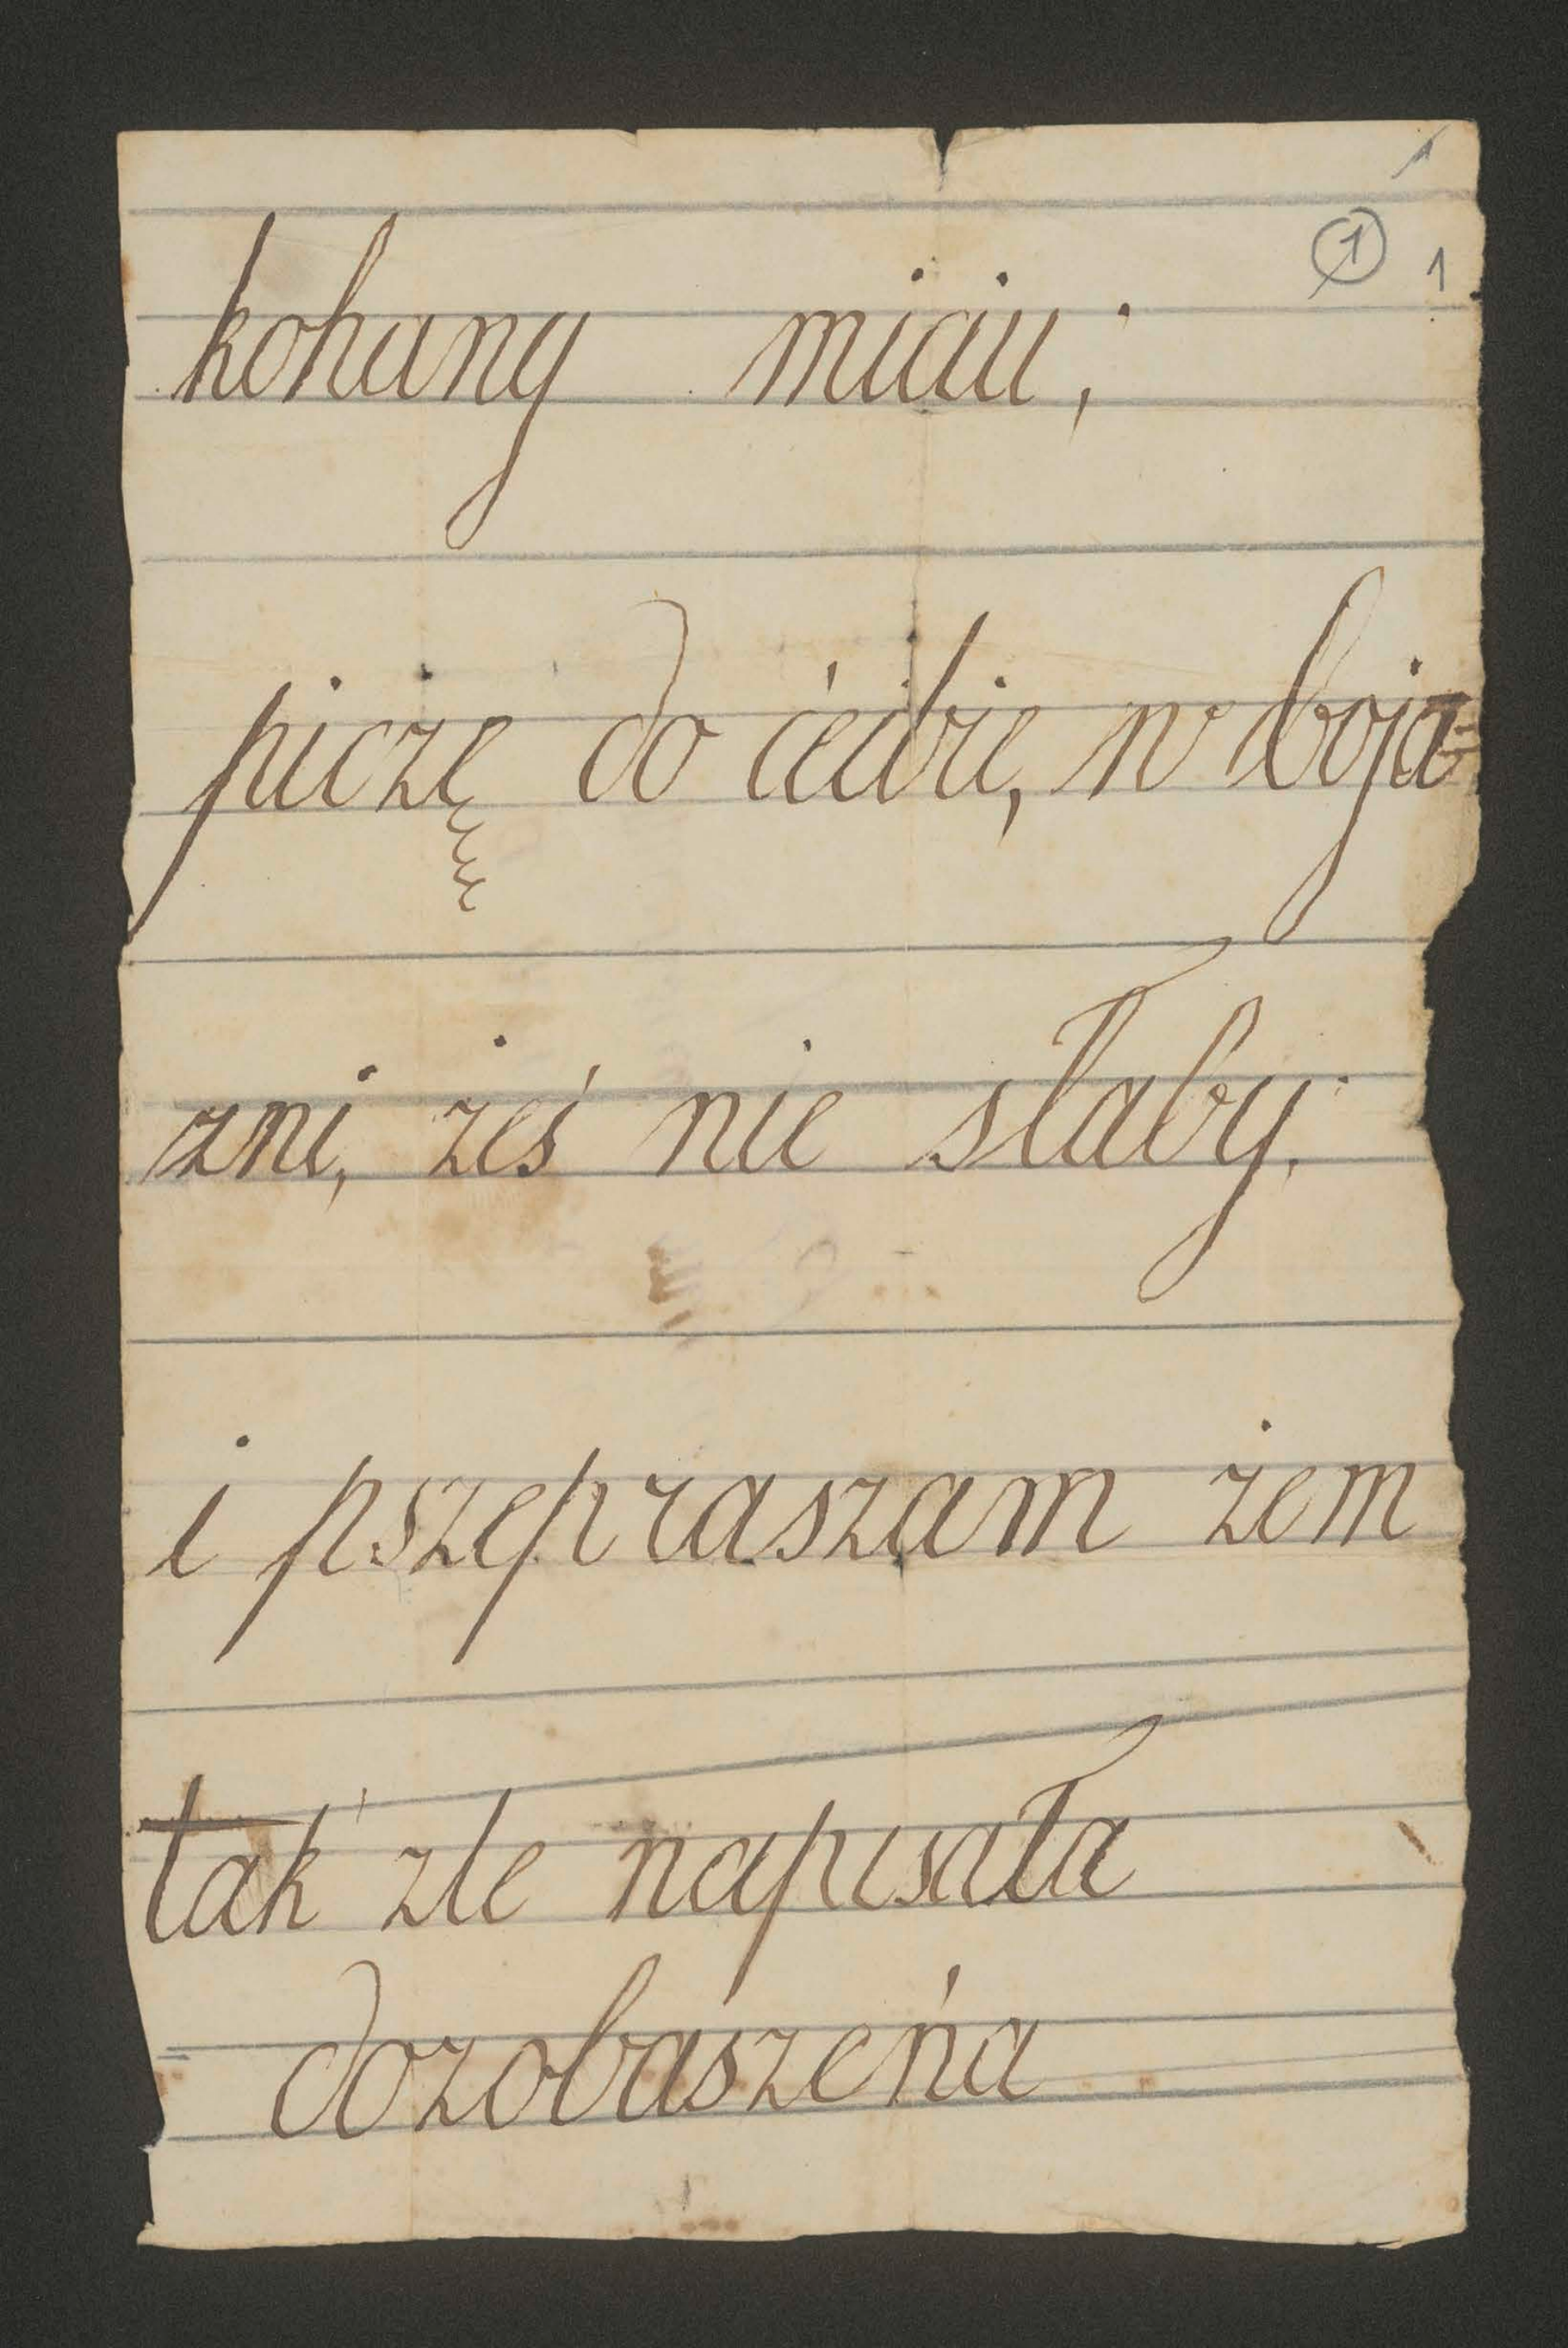 1
1 1
kohany miciu;
piczę do ćiebie, w boja-
zni, żeś nie słaby.
i pszepraszam żem
tak zle napisała
dozobaszeńa